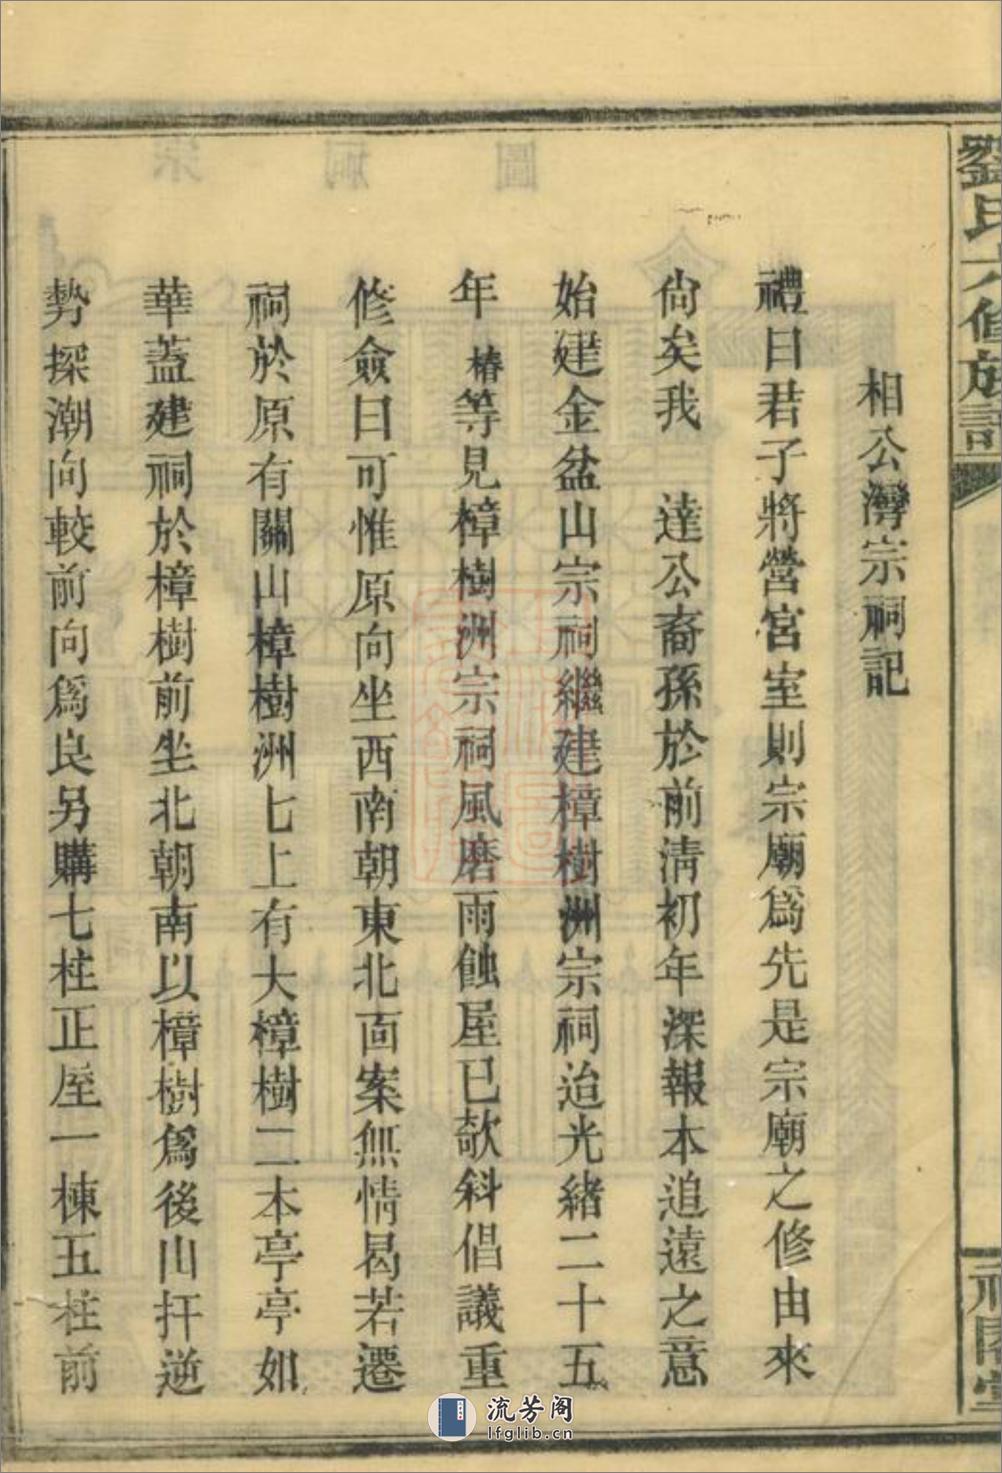 劉氏六修族譜
相公灣宗祠記
禮曰君子將營宮室則宗廟爲先是宗廟之修由來
尙矣我 達公裔孫於前淸初年深報本追遠之意
始建金盆山宗祠繼建樟樹洲宗祠迨光緒二十五
年 椿等見樟樹洲宗祠風磨雨蝕屋已欹斜倡議重
修僉曰可惟原向坐西南朝東北面案無情曷若遷
祠於原有關山樟樹洲七上有大樟樹二本亭亭如
華蓋建祠於樟樹前坐北朝南以樟樹爲後山扞逆
勢探潮向較前向爲良另購七柱正屋一棟五柱前
流芳阁
lfglib.cn